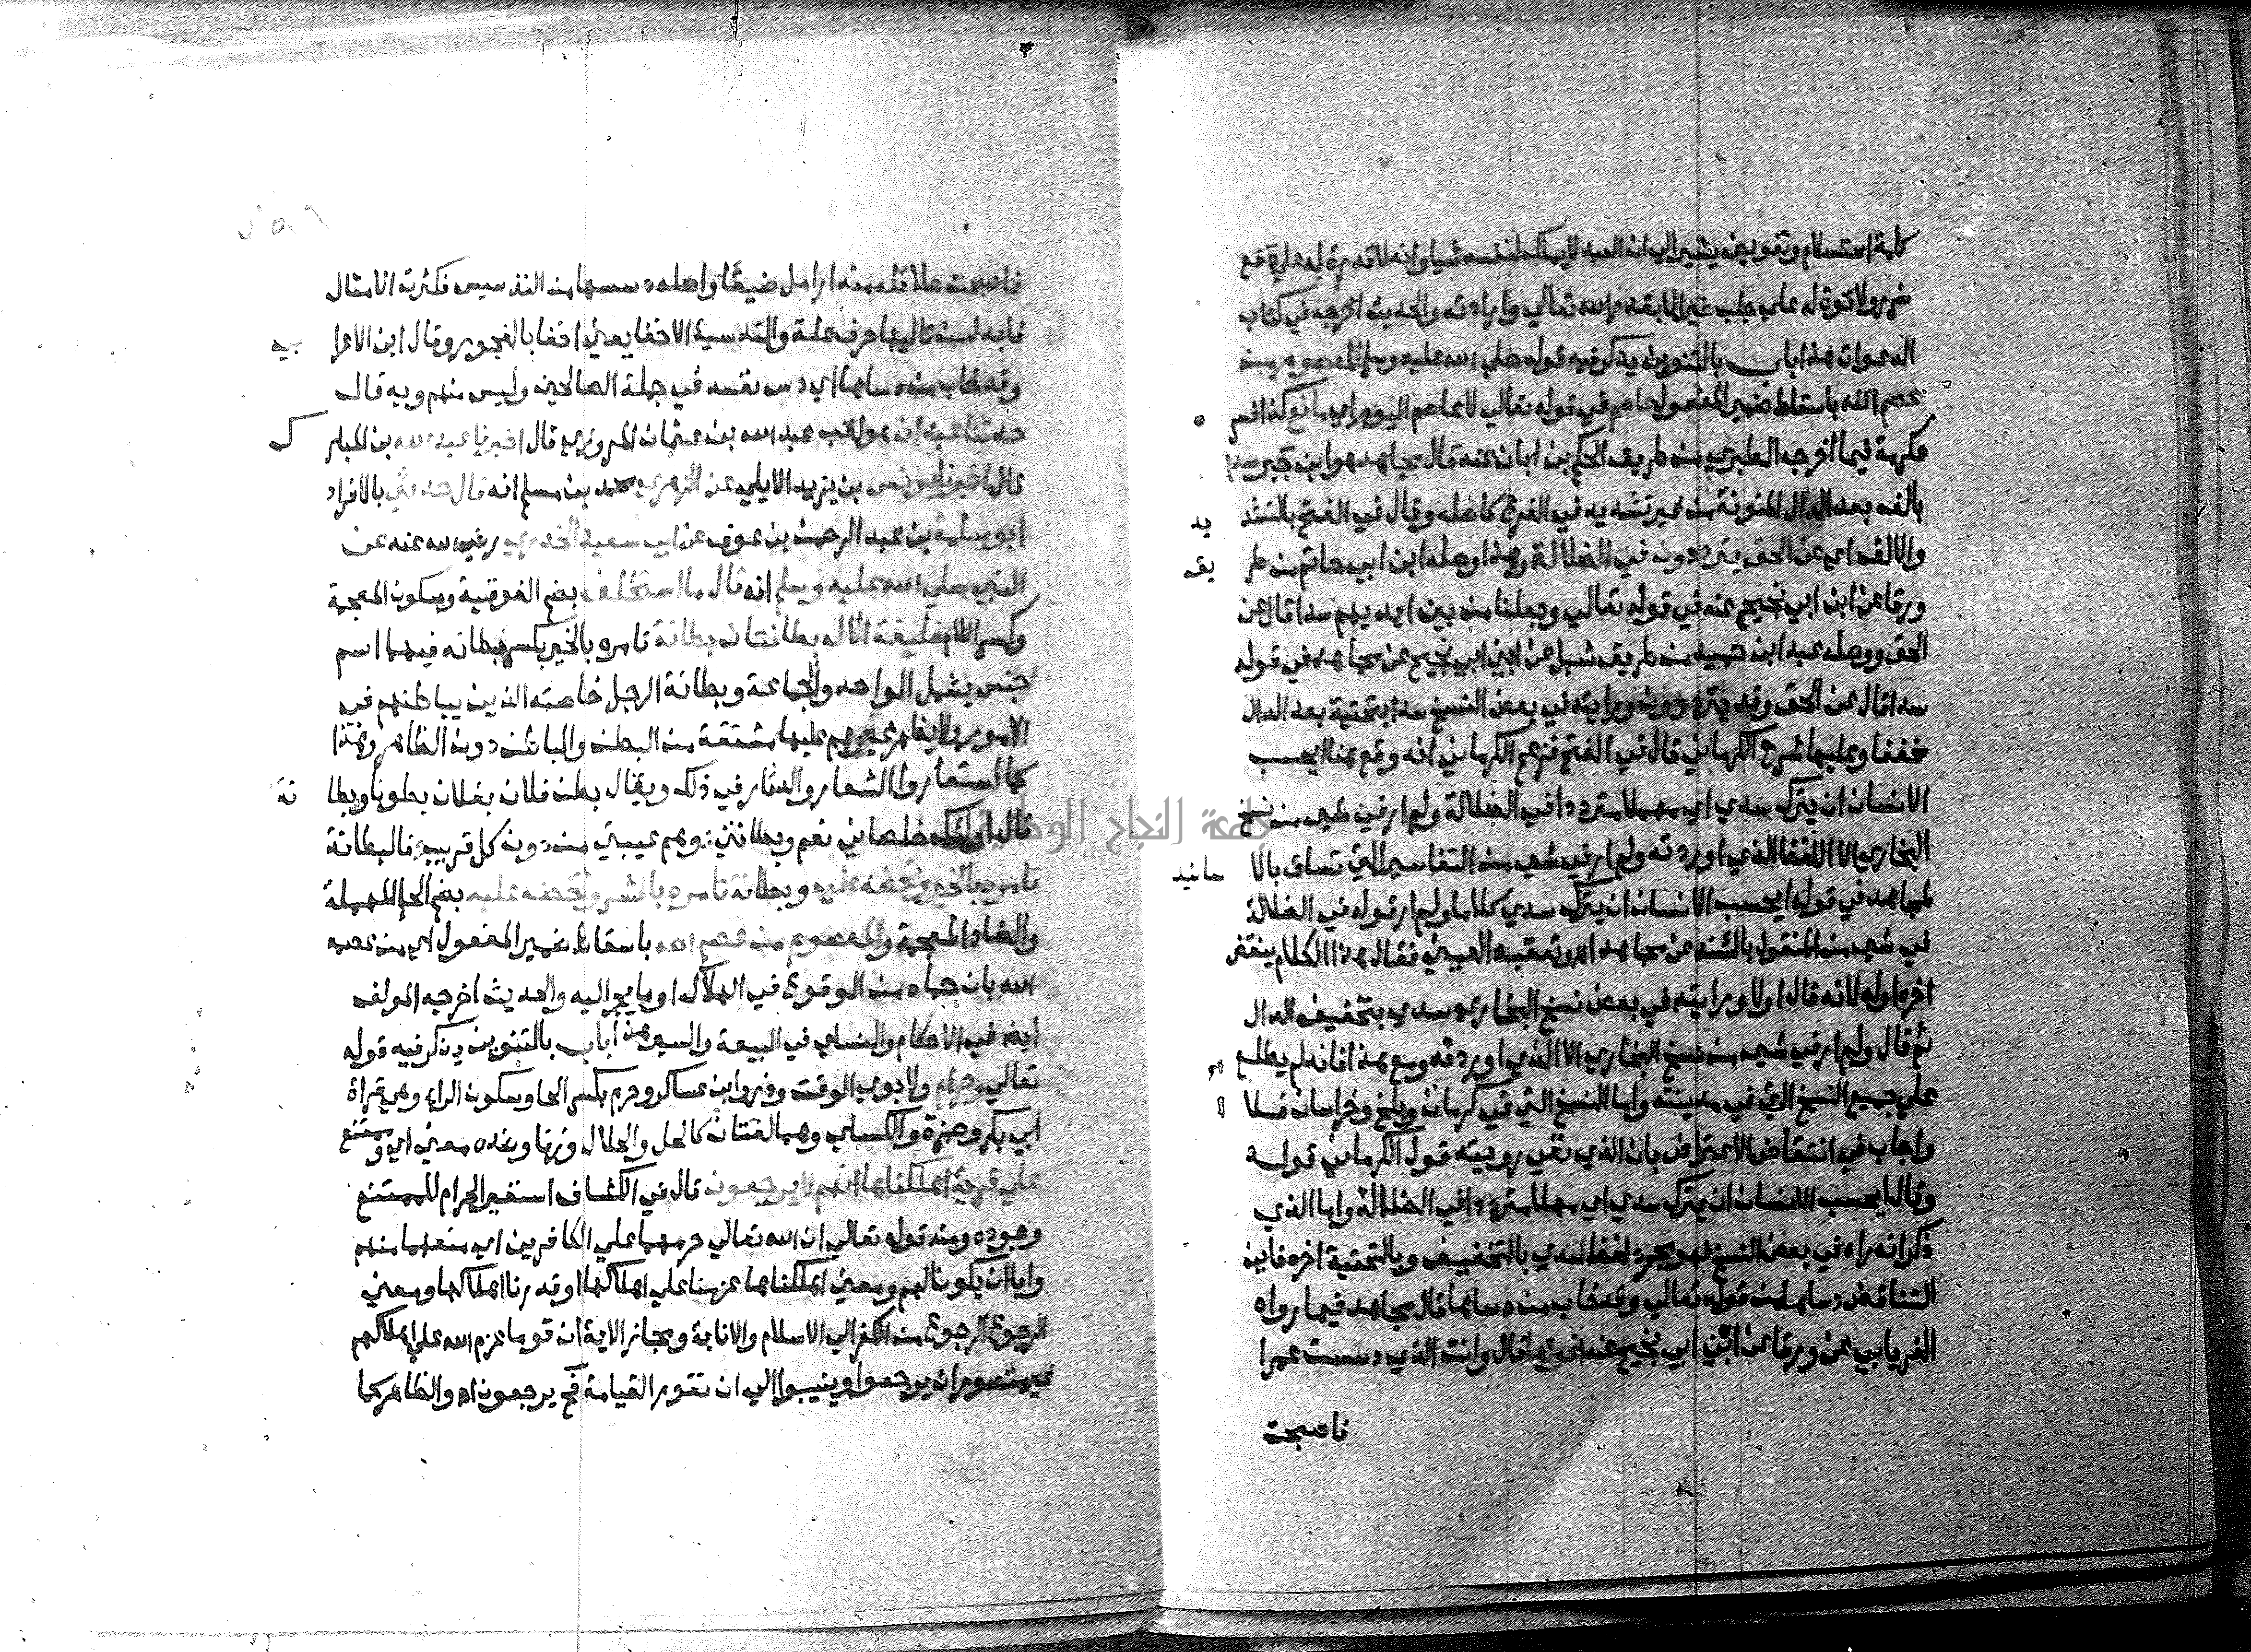 كلمة استسلام وتفويض يشير الي ان العبد لا يملك لنفسه شيا وانه لا قدرة له علي دفع
ضر ولا قوة له علي جلب خير الا بقدرة الله تعالي وارادته والحديث اخرجه في كتاب
الدعوات هذا باب بالتنوين يذكر فيه قوله صلي الله عليه وسلم المعصوم من
عصم الله باسقاط ضمير المفعول عاصم في قوله تعالي لا عاصم اليوم اي مانع كذا فسر
عكرمة فيما اخرجه الطبري من طريق الحكم بن ابان عنه قال مجاهد هو ابن جبر سدا
بالف بعد الدال المنونة من غير تشديد في الفرع كاصله وقال في الفتح بالتشد يد
والالف اي عن الحق يترددون في الضلالة وهذا وصله ابن ابي حاتم من طر يقه
ورقا عن ابن ابي نجيح عنه في قوله تعالي وجعلنا من بين ايديهم سدا قال عن
الحق ووصله عبد ابن حميد من طريق شبل عن ابن ابي نجيح عن مجاهد في قوله
سدا قال عن الحق وقد يترددون ورايته في بعض النسخ سدا بتحتية بعد الدال
مخففا وعليها شرح الكرماني قال في الفتح فزعم الكرماني انه وقع هنا ايحسب
الانسان ان يترك سدي اي مهملا مترددا في الضلالة ولم ار في شي من نسخ
البخاري الا اللفظ الذي اوردته ولم ار في شي من التفاسير التي تساق بالا سانيد
لمجاهد في قوله ايحسب الانسان ان يترك سدي كلاما ولم ار قوله في الضلالة
في شي من المنقول بالسند عن مجاهد اه وتعقبه العيني فقال هذا الكلام ينقض
اخره اوله لانه قال اولا ورايته في بعض نسخ البخاري سدي بتخفيف الدال
ثم قال ولم ار في شي من نسخ البخاري الا الذي اوردته ومع هذا فانه لم يطلع
علي جميع النسخ التي في مدينته واما النسخ التي في كرمان وبلخ وخراسان فلا
واجاب في انتقاض الاعتراض بان الذي نفي رويته قول الكرماني قوله
وقال ايحسب الانسان ان يترك سدي اي مهملا مترددا في الضلالة واما الذي
ذكر انه راه في بعض النسخ فهو مجرد لفظ سدي بالتخفيف وبالتحتية اخره فاين
التناقض دساها من قوله تعالي وقد خاب من دساها قال مجاهد فيما رواه
الفريابي عن ورقا عن ابن ابي نجيح عنه اغواها قال وانت الذي دسست عمرا
فاصبحت
فاصبحت حلائله منه ارامل ضيعا واصله دسسها من التدسيس فكثرت الامثال
فابدل من ثالثها حرف علة والتدسية الاخفا يعني اخفا بالفجور وقال ابن الاعرا بي
وقد خاب من دساها اي دس نفسه في جملة الصالحين وليس منهم وبه قال
حدثنا عبدان هو لقب عبد الله بن عثمان المروزي قال اخبرنا عبد الله بن المبار ك
قال اخبرنا يونس بن يزيد الايلي عن الزهري محمد بن مسلم انه قال حدثني بالافراد
ابو سلمة بن عبد الرحمن بن عوف عن ابي سعيد الخدري رضي الله عنه عن
النبي صلي الله عليه وسلم انه قال ما استخلف بضم الفوقية وسكون المعجمة
وكسر اللام خليفة الا له بطانتان بطانة تامره بالخير بكسر بطانه فيهما اسم
جنس يشمل الواحد والجماعة وبطانة الرجل خاصته الذين يباطنهم في
الامور ولا يظهر غيرهم عليها مشتقة من البطن والباطن دون الظاهر وهذا
كما استعاروا الشعار والدثار في ذلك ويقال بطن فلان بفلان بطونا وبطا نة
قال اولئك خلصاني نعم وبطانتي وهم عيبتي من دون كل قريب فالبطانة
تامره بالخير وتحضه عليه وبطانة تامره بالشر وتحضه عليه بضم الحا المهملة
والضاد المعجمة والمعصوم من عصم الله باسقاط ضمير المفعول اي من عصمه
الله بان حماه من الوقوع في الهلاك او ما يجر اليه والحديث اخرجه المولف
ايضا في الاحكام والنساي في البيعة والسير هذا باب بالتنوين يذكر فيه قوله
تعالي وحرام ولابوي الوقت وذر وابن عساكر وحرم بكسر الحا وسكون الراء وهي قراة
ابي بكر وحمزة والكساي وهما لغتان كالحل والحلال وزنا وضده معني اي وممتنع
علي قرية اهلكناها انهم لا يرجعون قال في الكشاف استعير الحرام للممتنع
وجوده ومنه قوله تعالي ان الله تعالي حرمهما علي الكافرين اي منعهما منهم
وابا ان يكونا لهم ومعني اهلكناها عزمنا علي اهلاكها او قدرنا اهلاكها ومعني
الرجوع الرجوع من الكفر الي الاسلام والانابة ومجاز الاية ان قوما عزم الله علي اهلاكهم
غير متصور ان يرجعوا وينيبوا الي ان تقوم القيامة فح يرجعون اه والظاهر كما